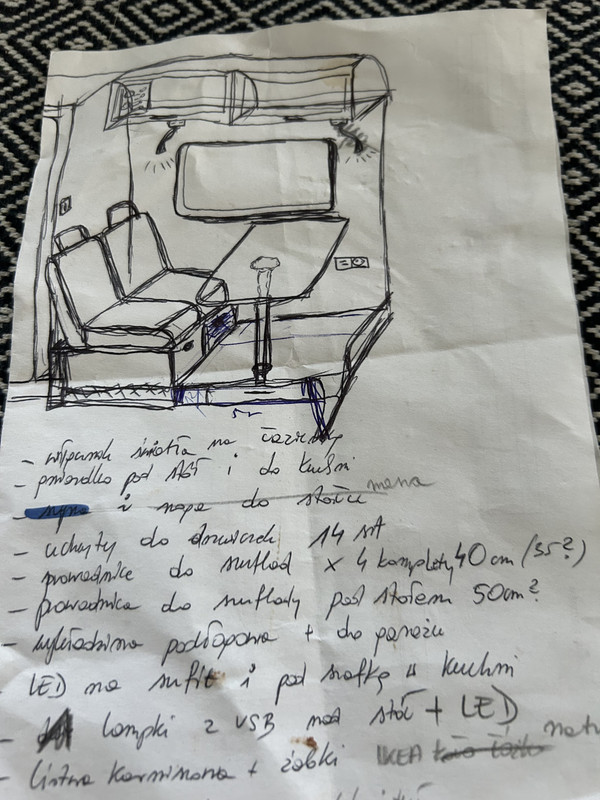 - włącznik światła na
- gniazdko pod stół i do kuchni
i napa do mana
- uchwyty do drzwiczek 14 szt
- prowadnice do szuflad x 4 komplety 40 cm (35?)
- prowadnica do szuflady pod stołem 50cm?
- wykładzina podłogowa + do garażu
- LED na sufit i pod szafką w kuchni
- lampki z USB nad stół + LED
- listwa karniszowa + żabki IKEA